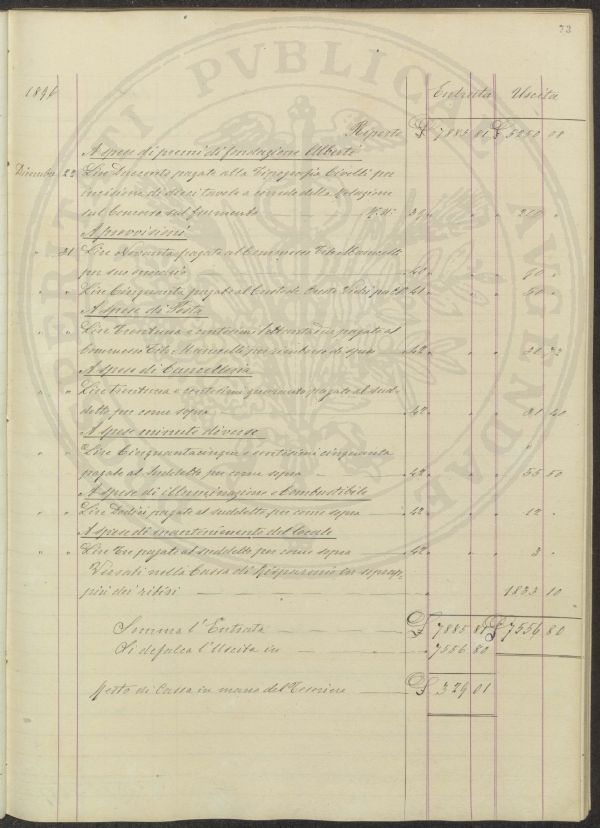 33
PERITI PVBLICAE AVGENDAE
1896 Entrata Uscita
Riporto £ 7885 81 £ 5250 08
A spese di premi di fondazione Alberti
Dicembre 22 Lire Duecento pagate alla Tipografia Civelli per
incisione di dieci tavole a corredo della Relazione
sul Concorso sul frumento N.° 39 " " 200 "
A provvisioni
" 31 Lire Novanta pagate al Commesso Tito Marucelli
per suo onorario " 40 " " 90 "
" " Lire Cinquanta pagate al Custode " 41 " " 50 "
A spese di Posta
" " Lire Trentuna e centesimi settantadue pagate al
Commesso Tito Marucelli per rimborso di spese " 42 " " 31 72
A spese di Cancelleria
" " Lire trentuna e centesimi quaranta pagate al sud-
detto per come sopra " 42 " " 31 40
A spese minute diverse
" " Lire Cinquantacinque e centesimi cinquanta
pagate al Suddetto per come sopra " 42 " " 55 50
A spese di illuminazione e Combustibile
" " Lire Dodici pagate al suddetto per come sopra " 42 " " 12 "
A spese di mantenimento del locale
" " Lire Tre pagate al suddetto per come sopra " 42 " " 3 "
Versati nella Cassa di Risparmio
" 1833 10
Somma l'Entrata £ 7885 81 £ 7556 80
Si defalca l'Uscita in " 7556 80
Resto di Cassa in mano del Tesoriere £ 329 01